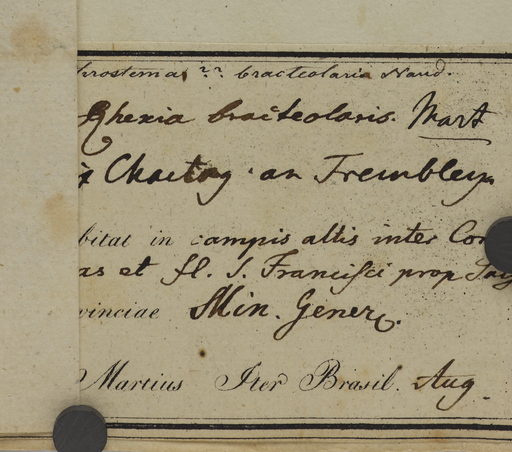 prostema ?? bracteolaria Naud.
Rhexia bracteolaris. Mart
Chaetog. an Trembleya
bitat in campis altis inter Con
as et fl. S. Francisci prop
vinciae Min. Gener.
Martius Iter Brasil. Aug.